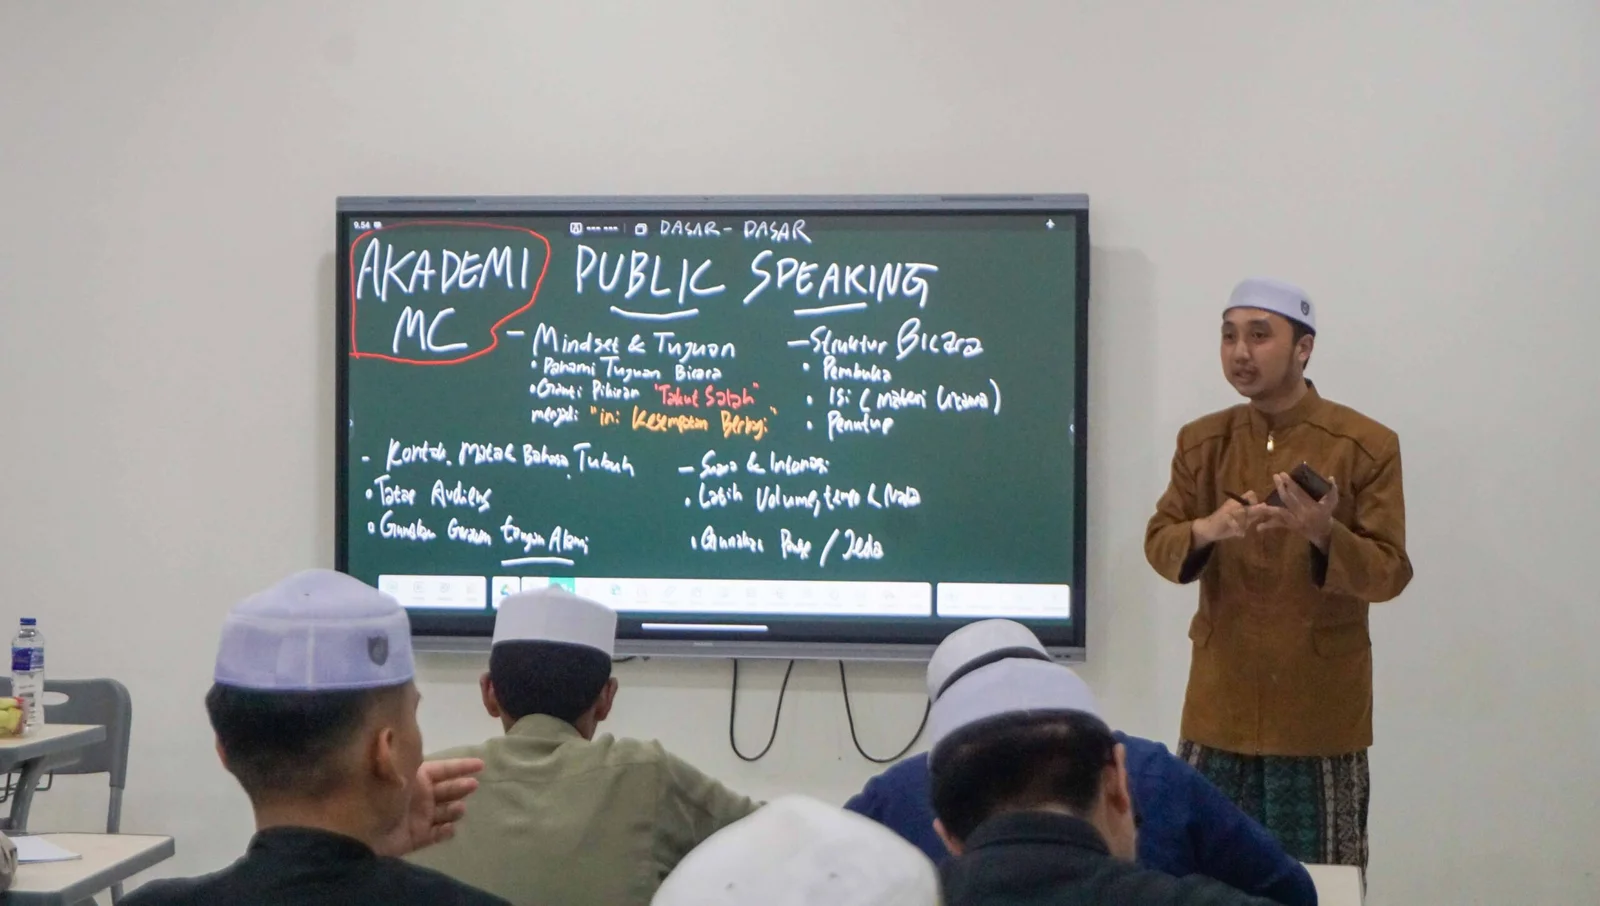 9.54
DASAR - DASAR
AKADEMI
MC
PUBLIC SPEAKING
- Mindset & Tujuan
• Pahami Tujuan Bicara
• Ganti Pikiran "Takut Salah"
menjadi "ini Kesempatan Berbagi"
- Struktur Bicara
• Pembuka
• Isi (Materi Utama)
• Penutup
- Kontak Mata & Bahasa Tubuh
• Tatap Audiens
• Gunakan Gerakan tangan Alami
- Suara & Intonasi
• Latih Volume, tempo & Nada
• Gunakan Pause / Jeda